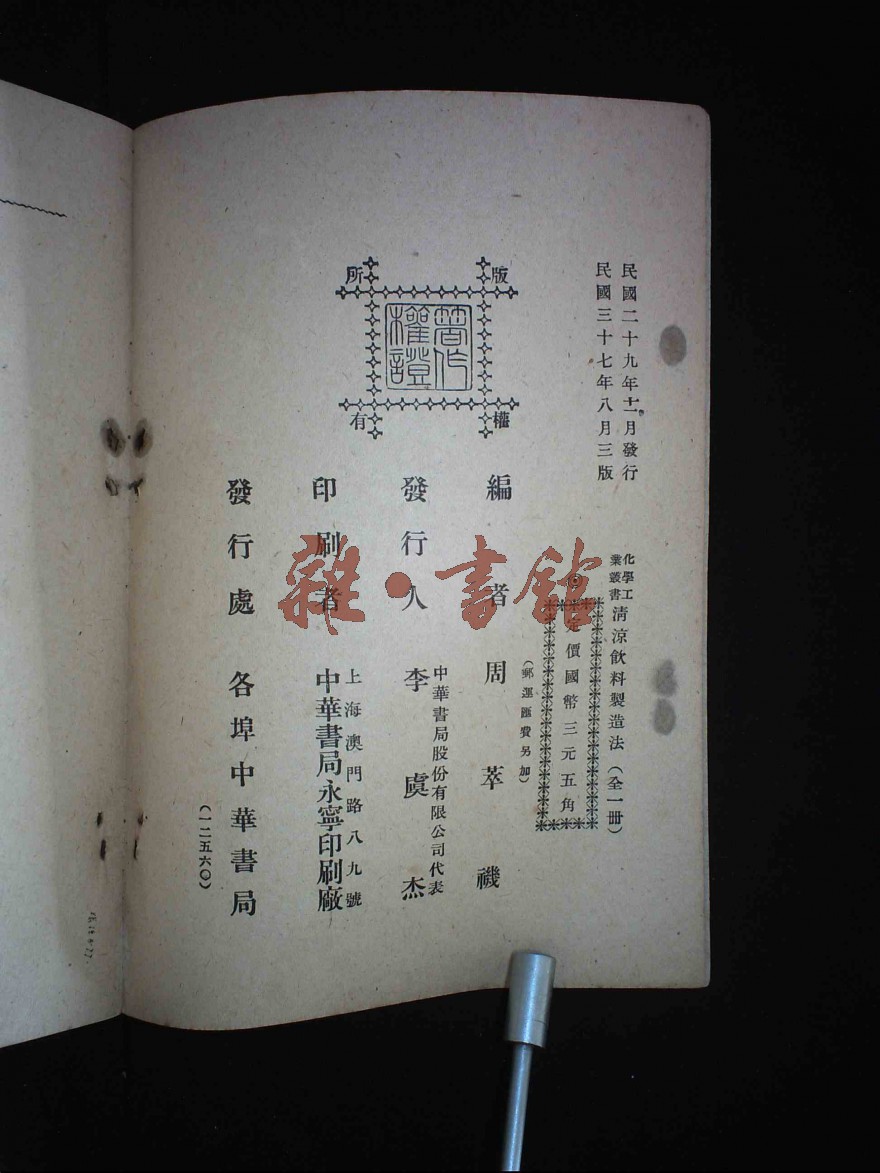 民國二十九年十二月發行
民國三十七年八月三版
化學工業叢書 清涼飲料製造法（全一冊）
定價國幣三元五角
（郵運匯費另加）
版權所有
著作權證
編者 周萃禨
發行人 中華書局股份有限公司代表 李虞杰
印刷者 上海澳門路八九號 中華書局永寧印刷廠
發行處 各埠中華書局
（一二五六〇）
雜·書館